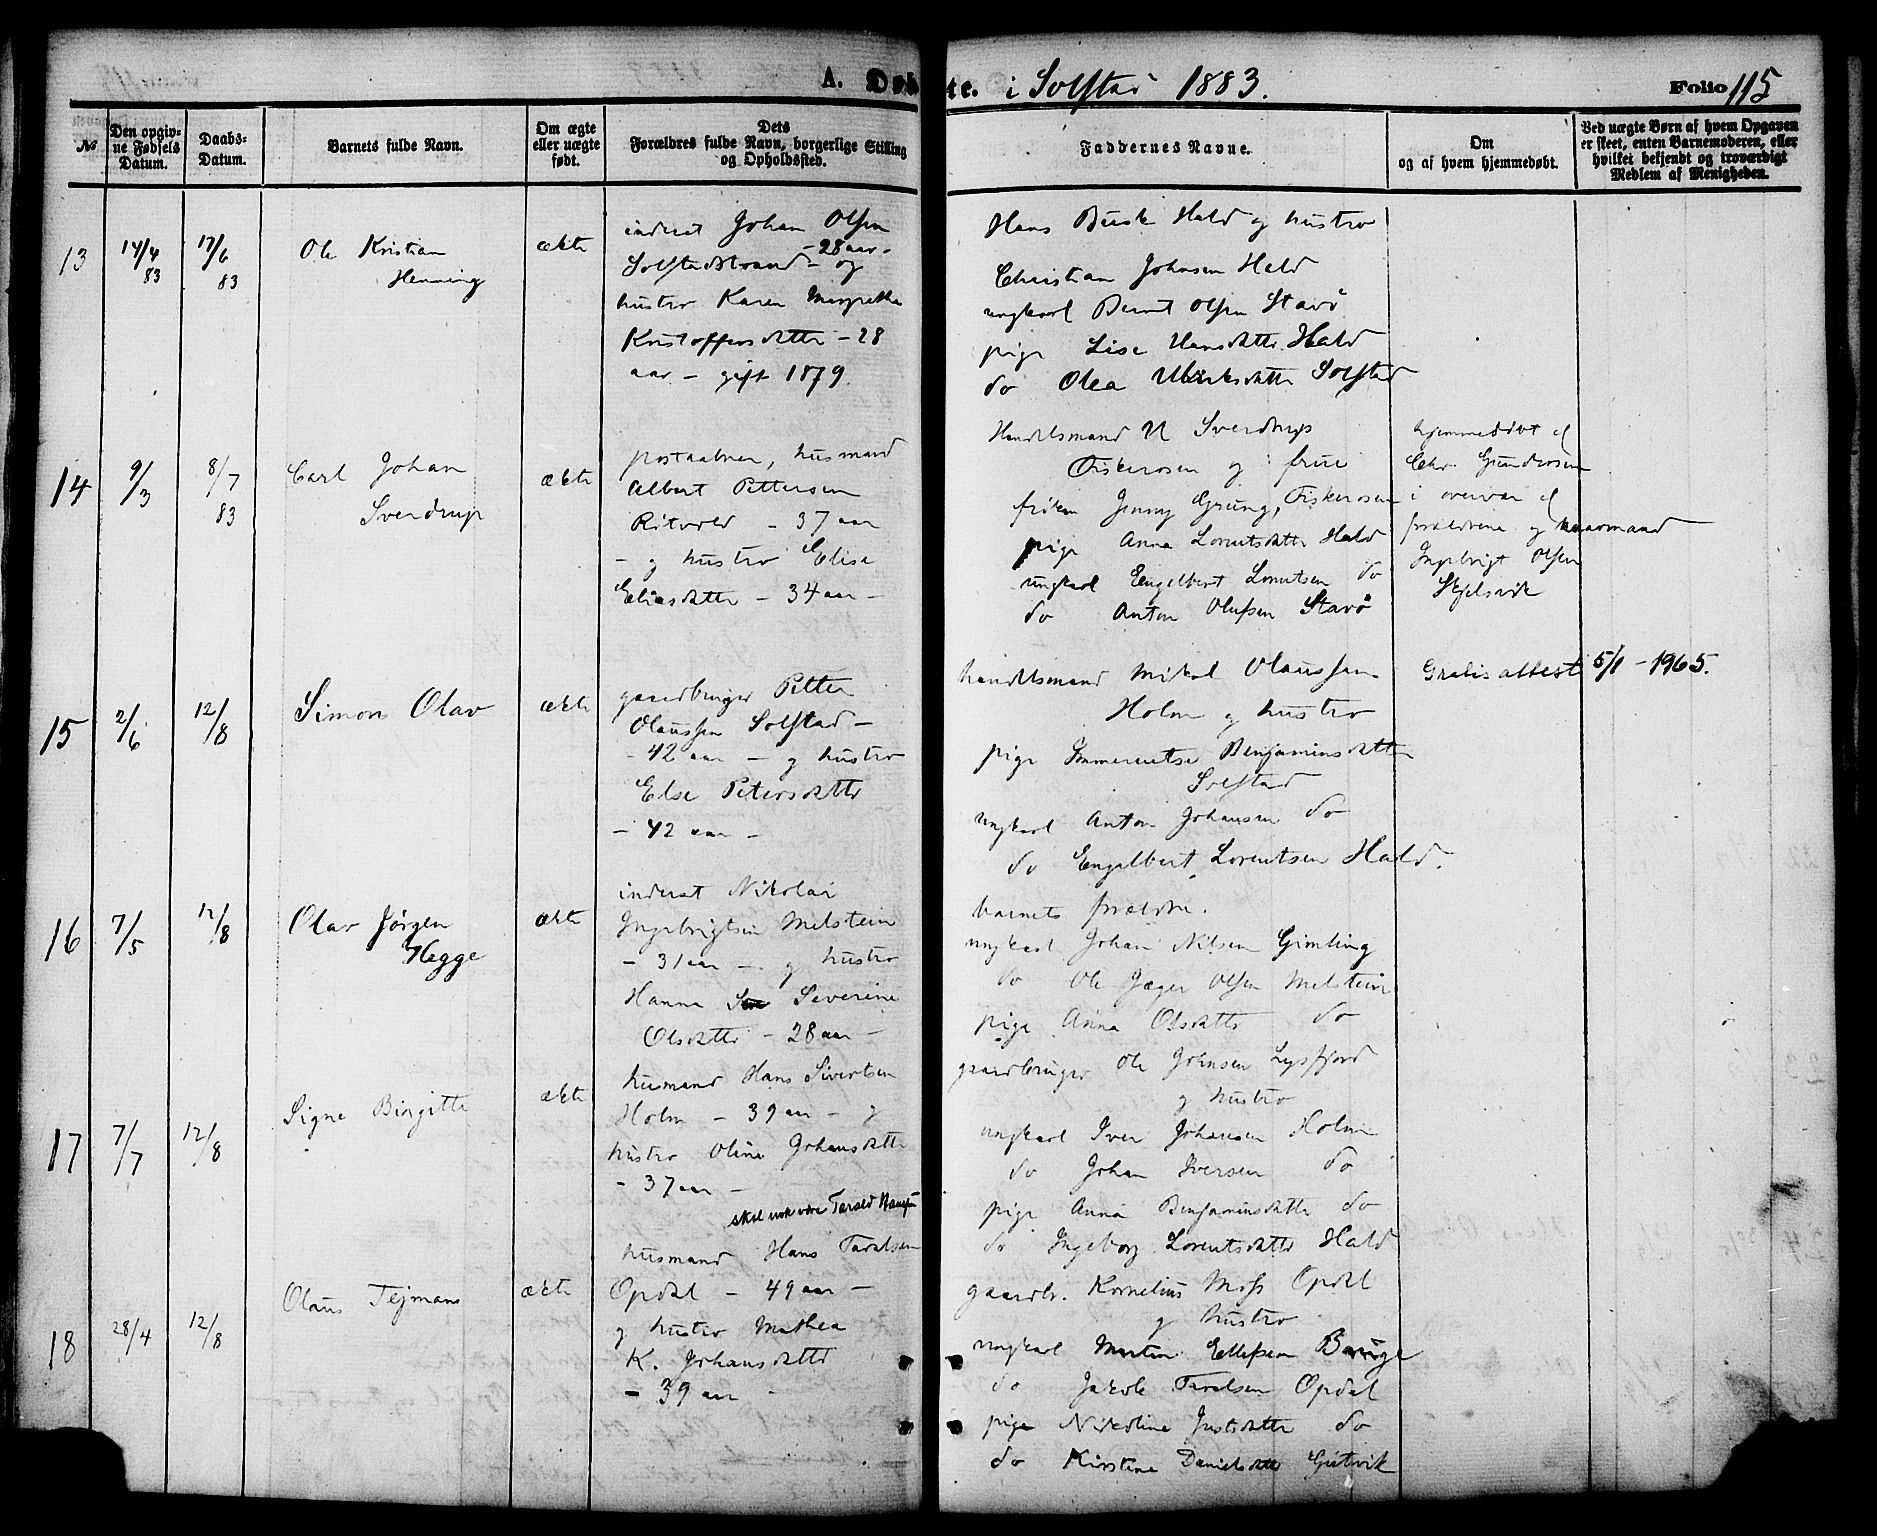 A. Døbte. i Solstad 1883. Folio 115
№
Den opgivne Fødsels Datum.
Daabs-Datum.
Barnets fulde Navn.
Om ægte eller uægte født.
Dets Forældres fulde Navn, borgerlige Stilling og Opholdssted.
Faddernes Navne.
Om og af hvem hjemmedøbt.
Ved uægte Børn af hvem Opgaven er skeet, enten Barnemoderen, eller hvilket bekjendt og troværdigt Medlem af Menigheden.
13
14/4 83
17/6 83
Ole Kristian
Henning
ækte
inderst Johan Olsen
- 28 aar -
Solstadstrand - og
hustro Karen Margrethe
Kristoffersdatter - 28
aar - gift 1879.
Hans Busk Hald og hustro
Christian Johnsen Hald
ungkarl Bernt Olsen Stavø
pige Lise Hansdatter Hald
do Olea Ulriksdatter Solstad
14
9/3
8/7 83
Carl Johan
Sverdrup
ækte
postaabner, husmand
Albert Pettersen
- 37 aar
- og hustro Elise
Eliasdatter - 34 aar -
Handelsmand U Sverdrup
Fiskerosen og frue
frøken Jenny Grung, Fiskerosen
pige Anna Lorentsdatter Hald
ungkarl Engelbert Lorntsen do
do Anton Olufsen Stavø
hjemmedøbt af
Chr. Gundrosen
i overvær af
forældrene og
Ingebrigt Olsen
Skjelsvik
15
2/6
12/8
Simon Olav
ækte
gaardbruger Petter
Olaussen Solstad -
- 42 aar - og hustro
Else Petersdatter
- 42 aar -
handelsmand Mikal Olaussen
Holm og hustro
pige Emmerentse Benjaminsdatter
Solstad
ungkarl Anton Johansen do
do Engelbert Lorentsen Hald.
Gratis attest 5/1 - 1965.
16
7/5
12/8
Olav Jørgen
Hegge
ækte
inderst Nikolai
Ingebrigtsen Melstein
- 31 aar - og hustro
Hanna Severine
Olsdatter - 28 aar -
barnets forældre.
ungkarl Johan Nilsen Gimling
do Ole Jæger Olsen Melstein
pige Anna Olsdatter do
17
7/7
12/8
Signe Birgitte
ækte
husmand Hans Sivertsen
Holm - 39 aar - og
hustro Oline Johansdatter
- 37 aar -
gaardbruger Ole Johnsen Lysfjord
og hustro
ungkarl Iver Johansen Holm
do Johan Iversen do
pige Anna Benjaminsdatter do
do Ingeborg Lorentsdatter Hald
18
28/4
12/8
Olaus Tejmans
ækte
skal nok være Tarald Hansen
husmand Hans Taralsen
Opdal - 49 aar -
og hustro Mathea
K. Johansdatter
- 39 aar -
gaardbr. Kornelius Moss Opdal
og hustro
ungkarl Martin Ellefsen Bauge
do Jakob Taralsen Opdal
pige Nikoline Justsdatter do
do Kirstine Danielsdatter Gutvik